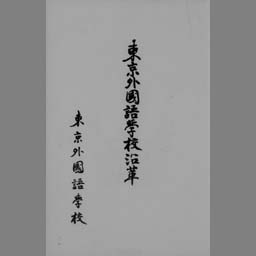 東京外國語學校沿革
東京外國語學校